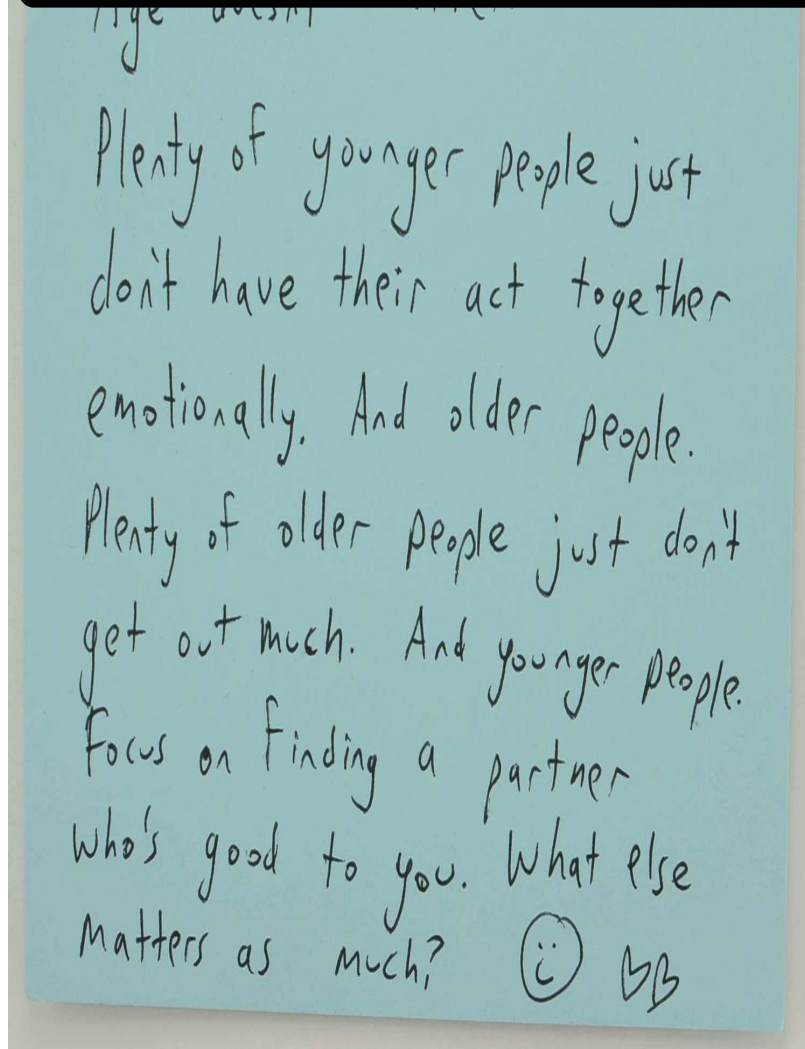 Age doesn't
Plenty of younger people just
don't have their act together
emotionally. And older people.
Plenty of older people just don't
get out much. And younger people.
Focus on finding a partner
who's good to you. What else
matters as much?